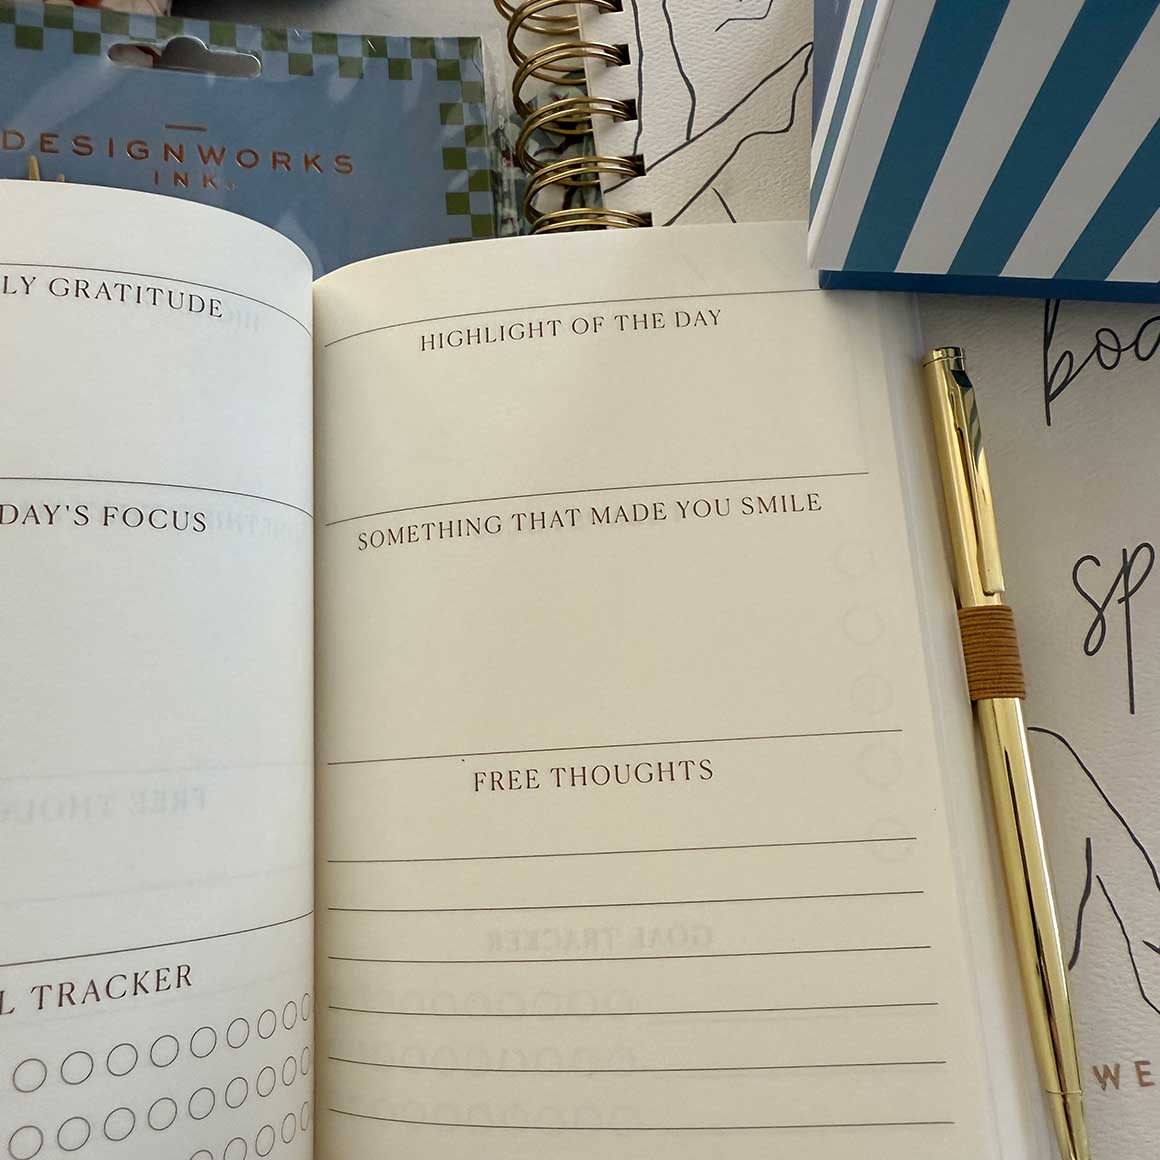 DESIGNWORKS
INK.
LY GRATITUDE
DAY'S FOCUS
L TRACKER
HIGHLIGHT OF THE DAY
SOMETHING THAT MADE YOU SMILE
FREE THOUGHTS
FREE THOU
GOAL TRACKER
boa
sp
WE